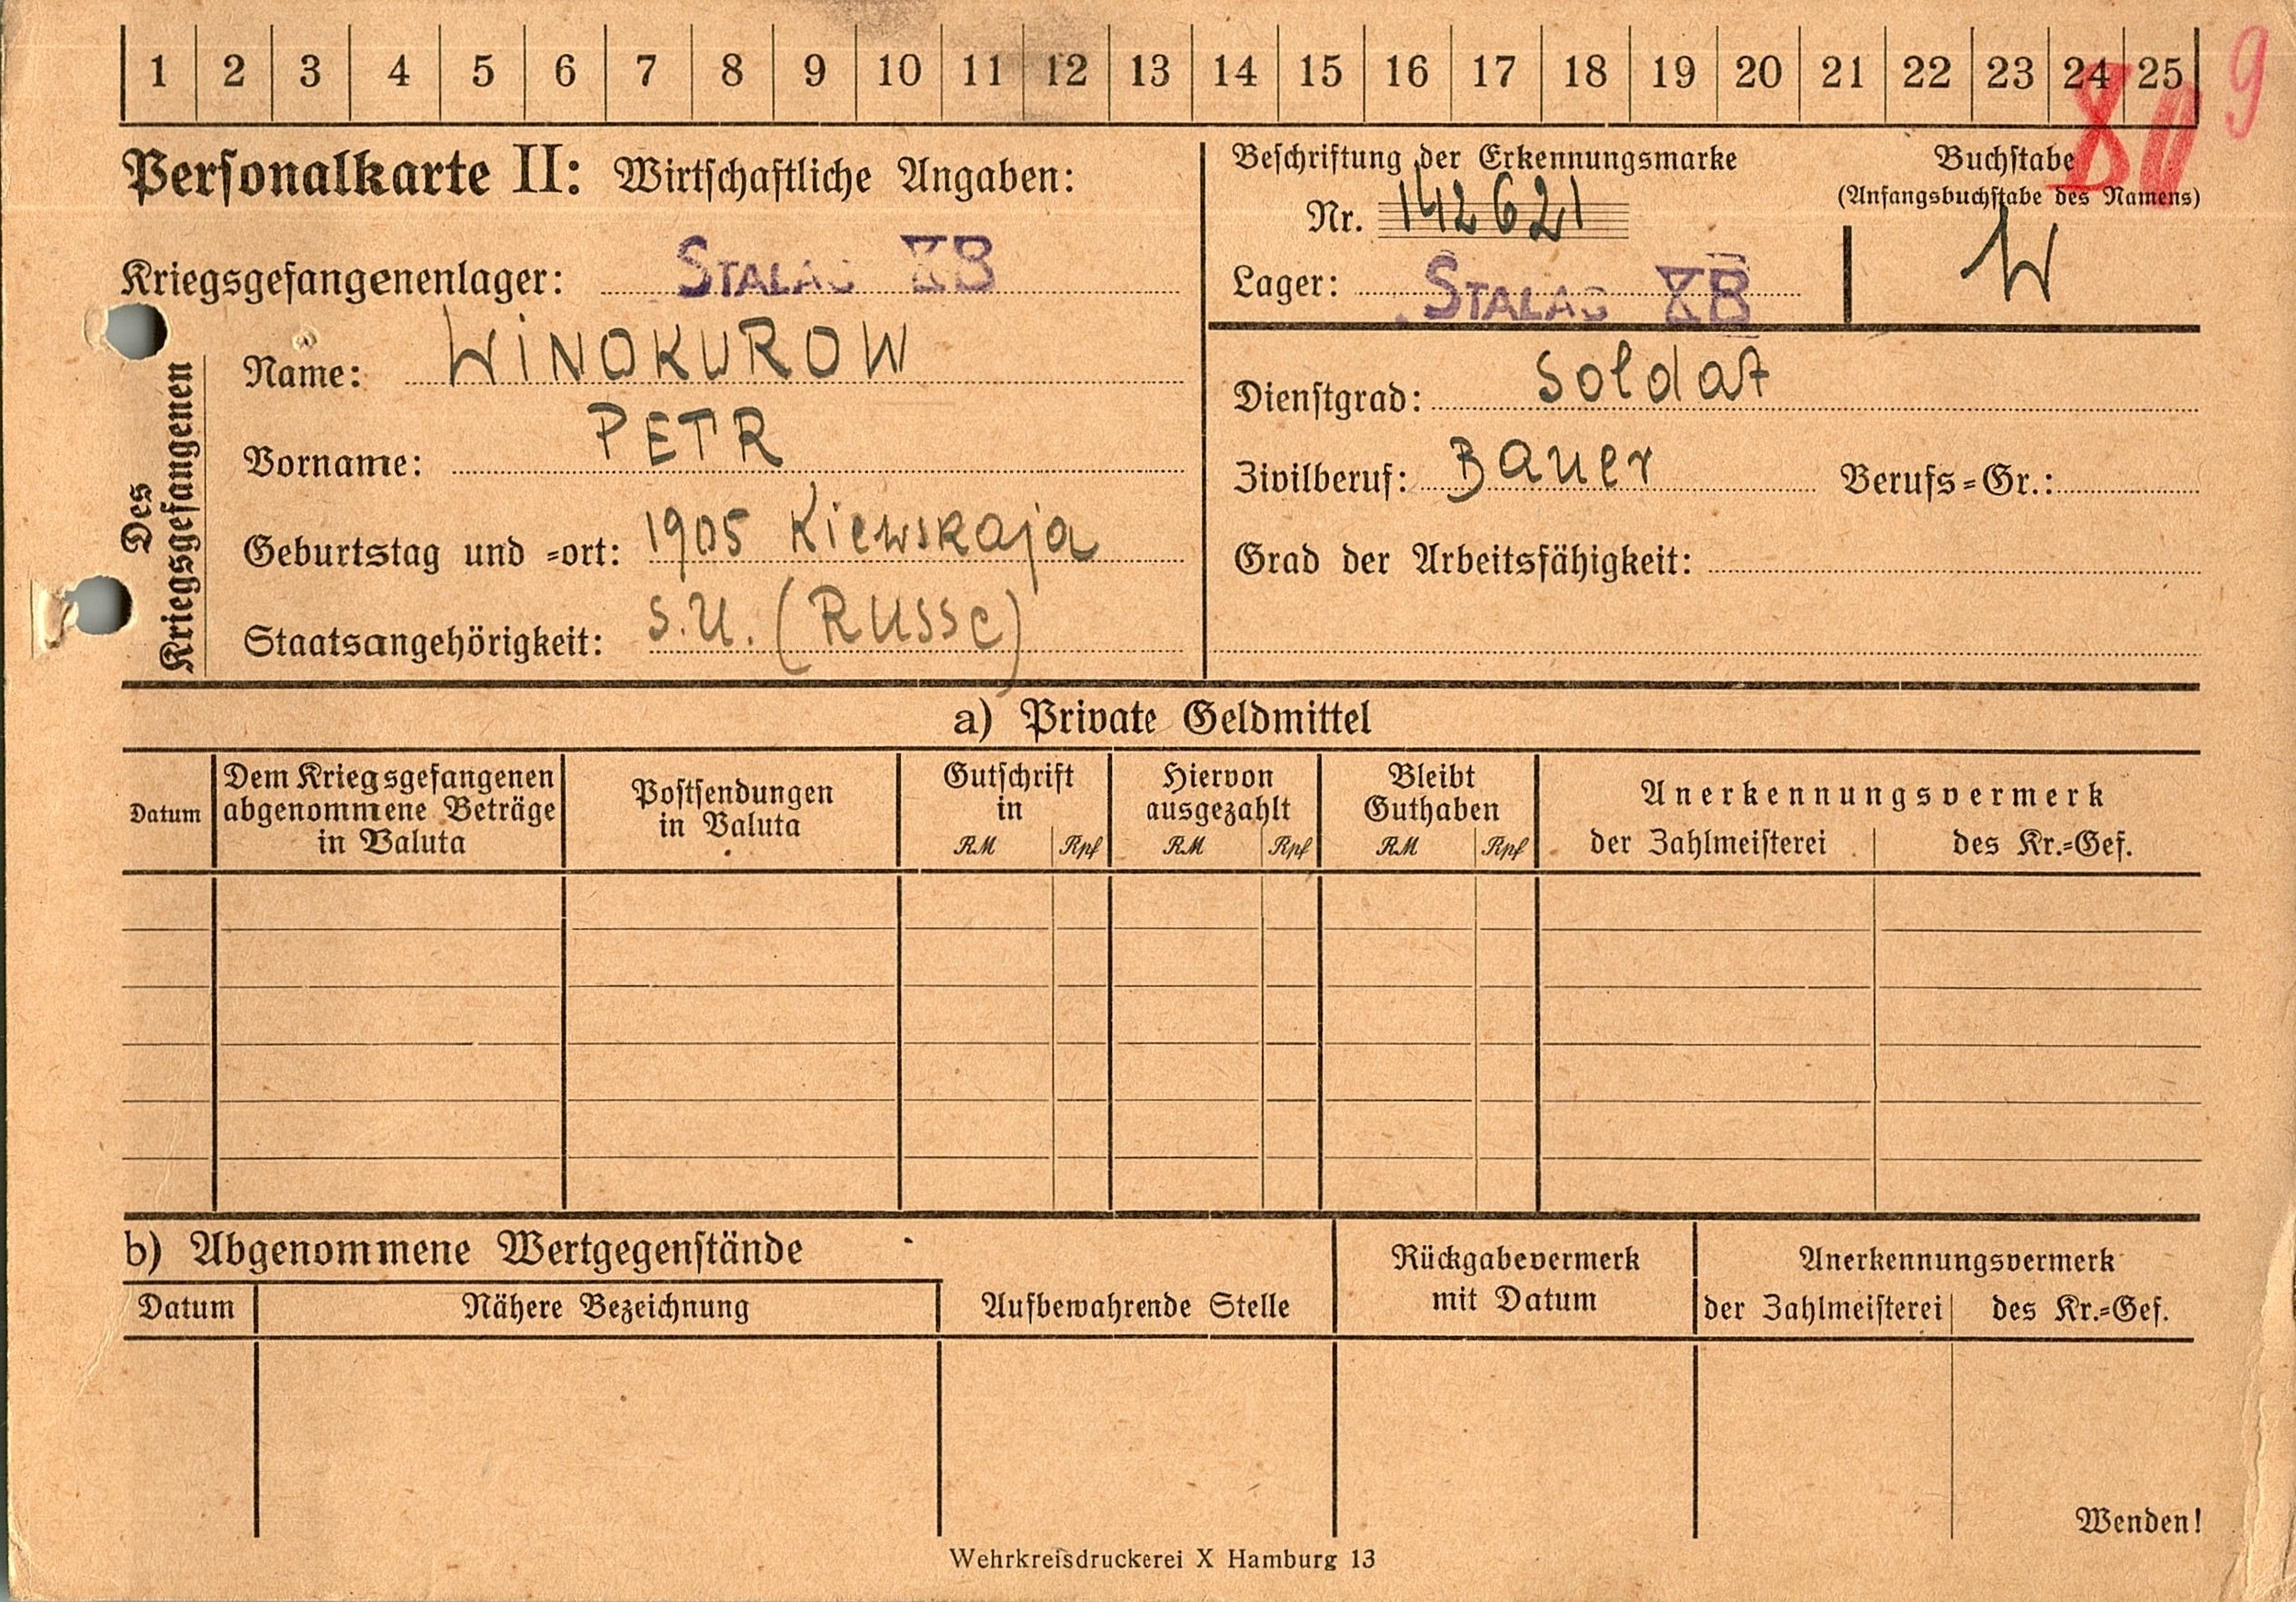 1 2 3 4 5 6 7 8 9 10 11 12 13 14 15 16 17 18 19 20 21 22 23 24 25
9
80
Personalkarte II: Wirtschaftliche Angaben:
Kriegsgefangenenlager: STALAG XB
Beschriftung der Erkennungsmarke
Nr. 142621
Lager: STALAG XB
Buchstabe
(Anfangsbuchstabe des Namens)
W
Des
Kriegsgefangenen
Name: WINOKUROW
Vorname: PETR
Geburtstag und =ort: 1905 Kiewskaja
Staatsangehörigkeit: S.U. (RUSSE)
Dienstgrad: Soldat
Zivilberuf: Bauer Berufs=Gr.:
Grad der Arbeitsfähigkeit:
a) Private Geldmittel
Datum
Dem Kriegsgefangenen
abgenommene Beträge
in Valuta
Postsendungen
in Valuta
Gutschrift
in
RM Rpf
Hiervon
ausgezahlt
RM Rpf
Bleibt
Guthaben
RM Rpf
Anerkennungsvermerk
der Zahlmeisterei des Kr.=Gef.
b) Abgenommene Wertgegenstände
Datum Nähere Bezeichnung Aufbewahrende Stelle
Rückgabevermerk
mit Datum
Anerkennungsvermerk
der Zahlmeisterei des Kr.=Gef.
Wenden!
Wehrkreisdruckerei X Hamburg 13